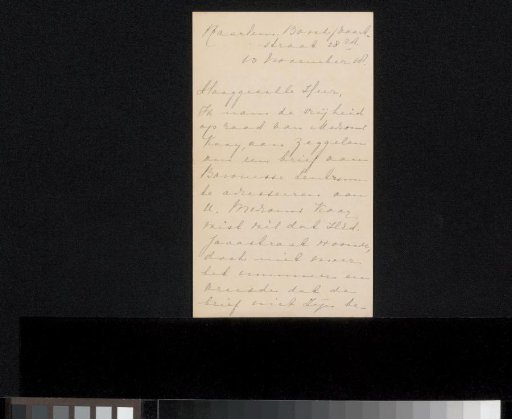 Haarlem
straat 28
10 November
Hooggeachte Heer,
Ik nam de vrijheid
op raad van Mevrouw
Kaay, van Zeggelen
om een brief aan
Baronesse
te adresseeren aan
U. Mevrouw Kaay
wist wel dat UEd.
Javastraat woonde,
doch niet meer
het nummer en
vreesde dat de
brief niet te-